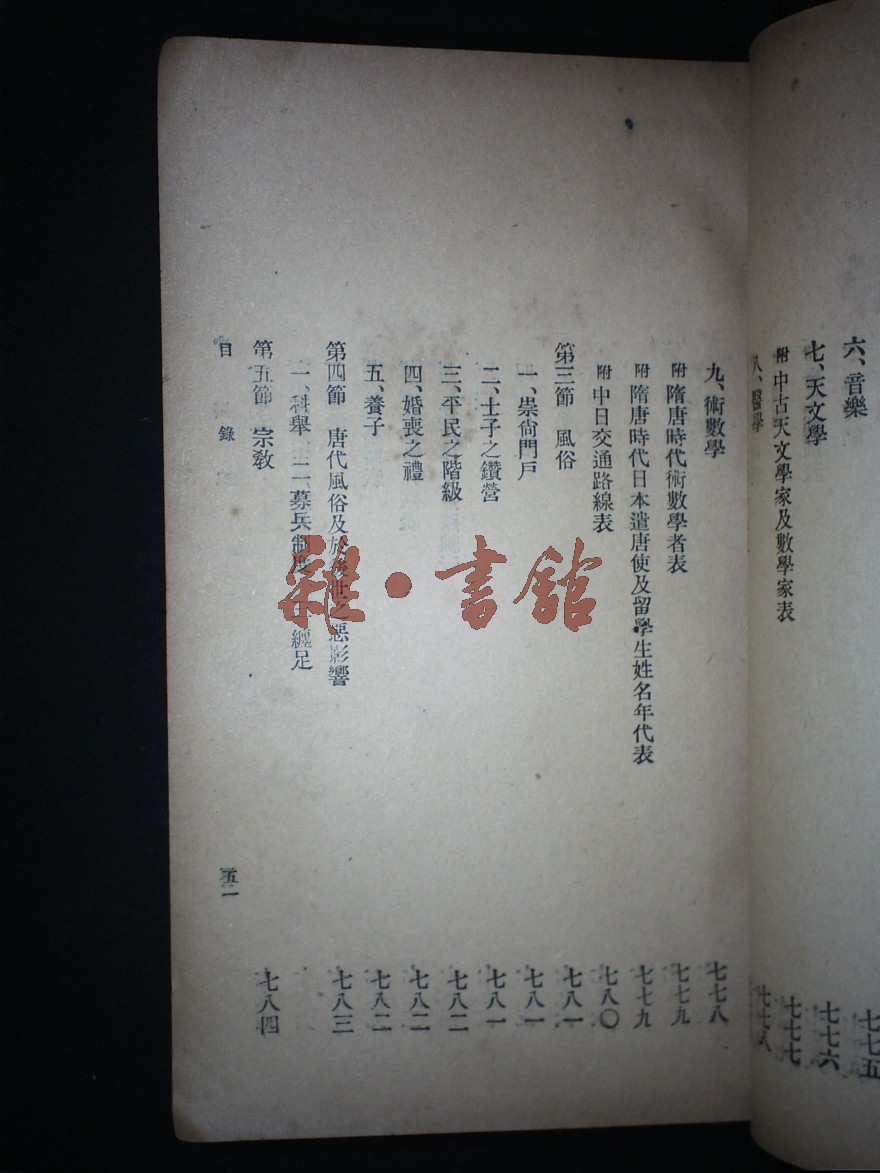 六、音樂 七七五
七、天文學 七七六
附 中古天文學家及數學家表 七七七
八、醫學 七七八
九、術數學 七七八
附 隋唐時代術數學者表 七七九
附 隋唐時代日本遣唐使及留學生姓名年代表 七七九
附 中日交通路線表 七八〇
第三節 風俗 七八一
一、崇尙門戶 七八一
二、士子之鑽營 七八一
三、平民之階級 七八二
四、婚喪之禮 七八二
五、養子 七八二
第四節 唐代風俗及於後世之惡影響 七八三
一、科舉 二、募兵制度 纏足
第五節 宗敎 七八四
目錄
五二
雜·書館